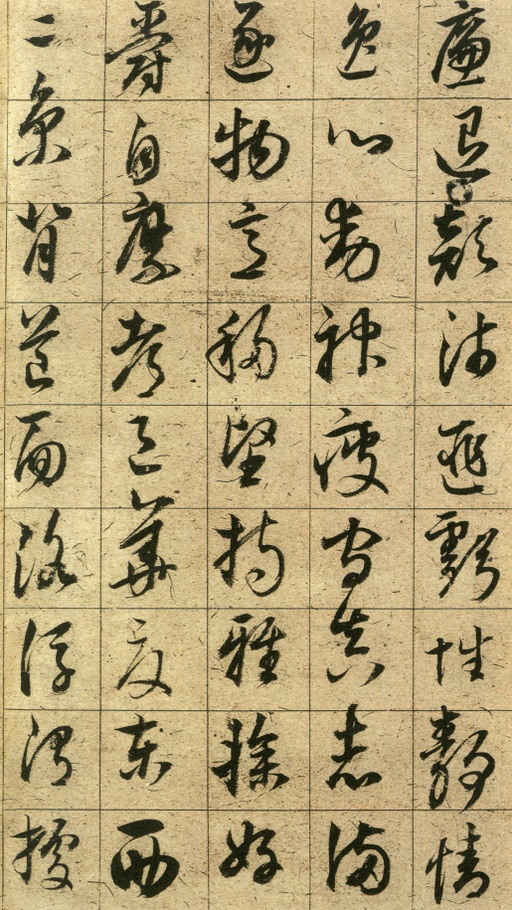 廉退顛沛匪虧性靜情
逸心動神疲守真志滿
逐物意移堅持雅操好
爵自縻都邑華夏東西
二京背芒面洛浮渭據